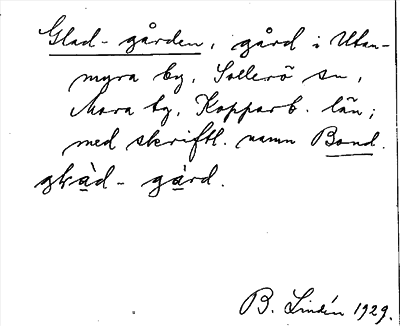 Glad-gården, gård i Utan-
myra by, Sollerö sn,
Mora tg, Kopparb. län;
med skriftl. namn Bond.
glàd-gàrd.
B. Lindén 1929.